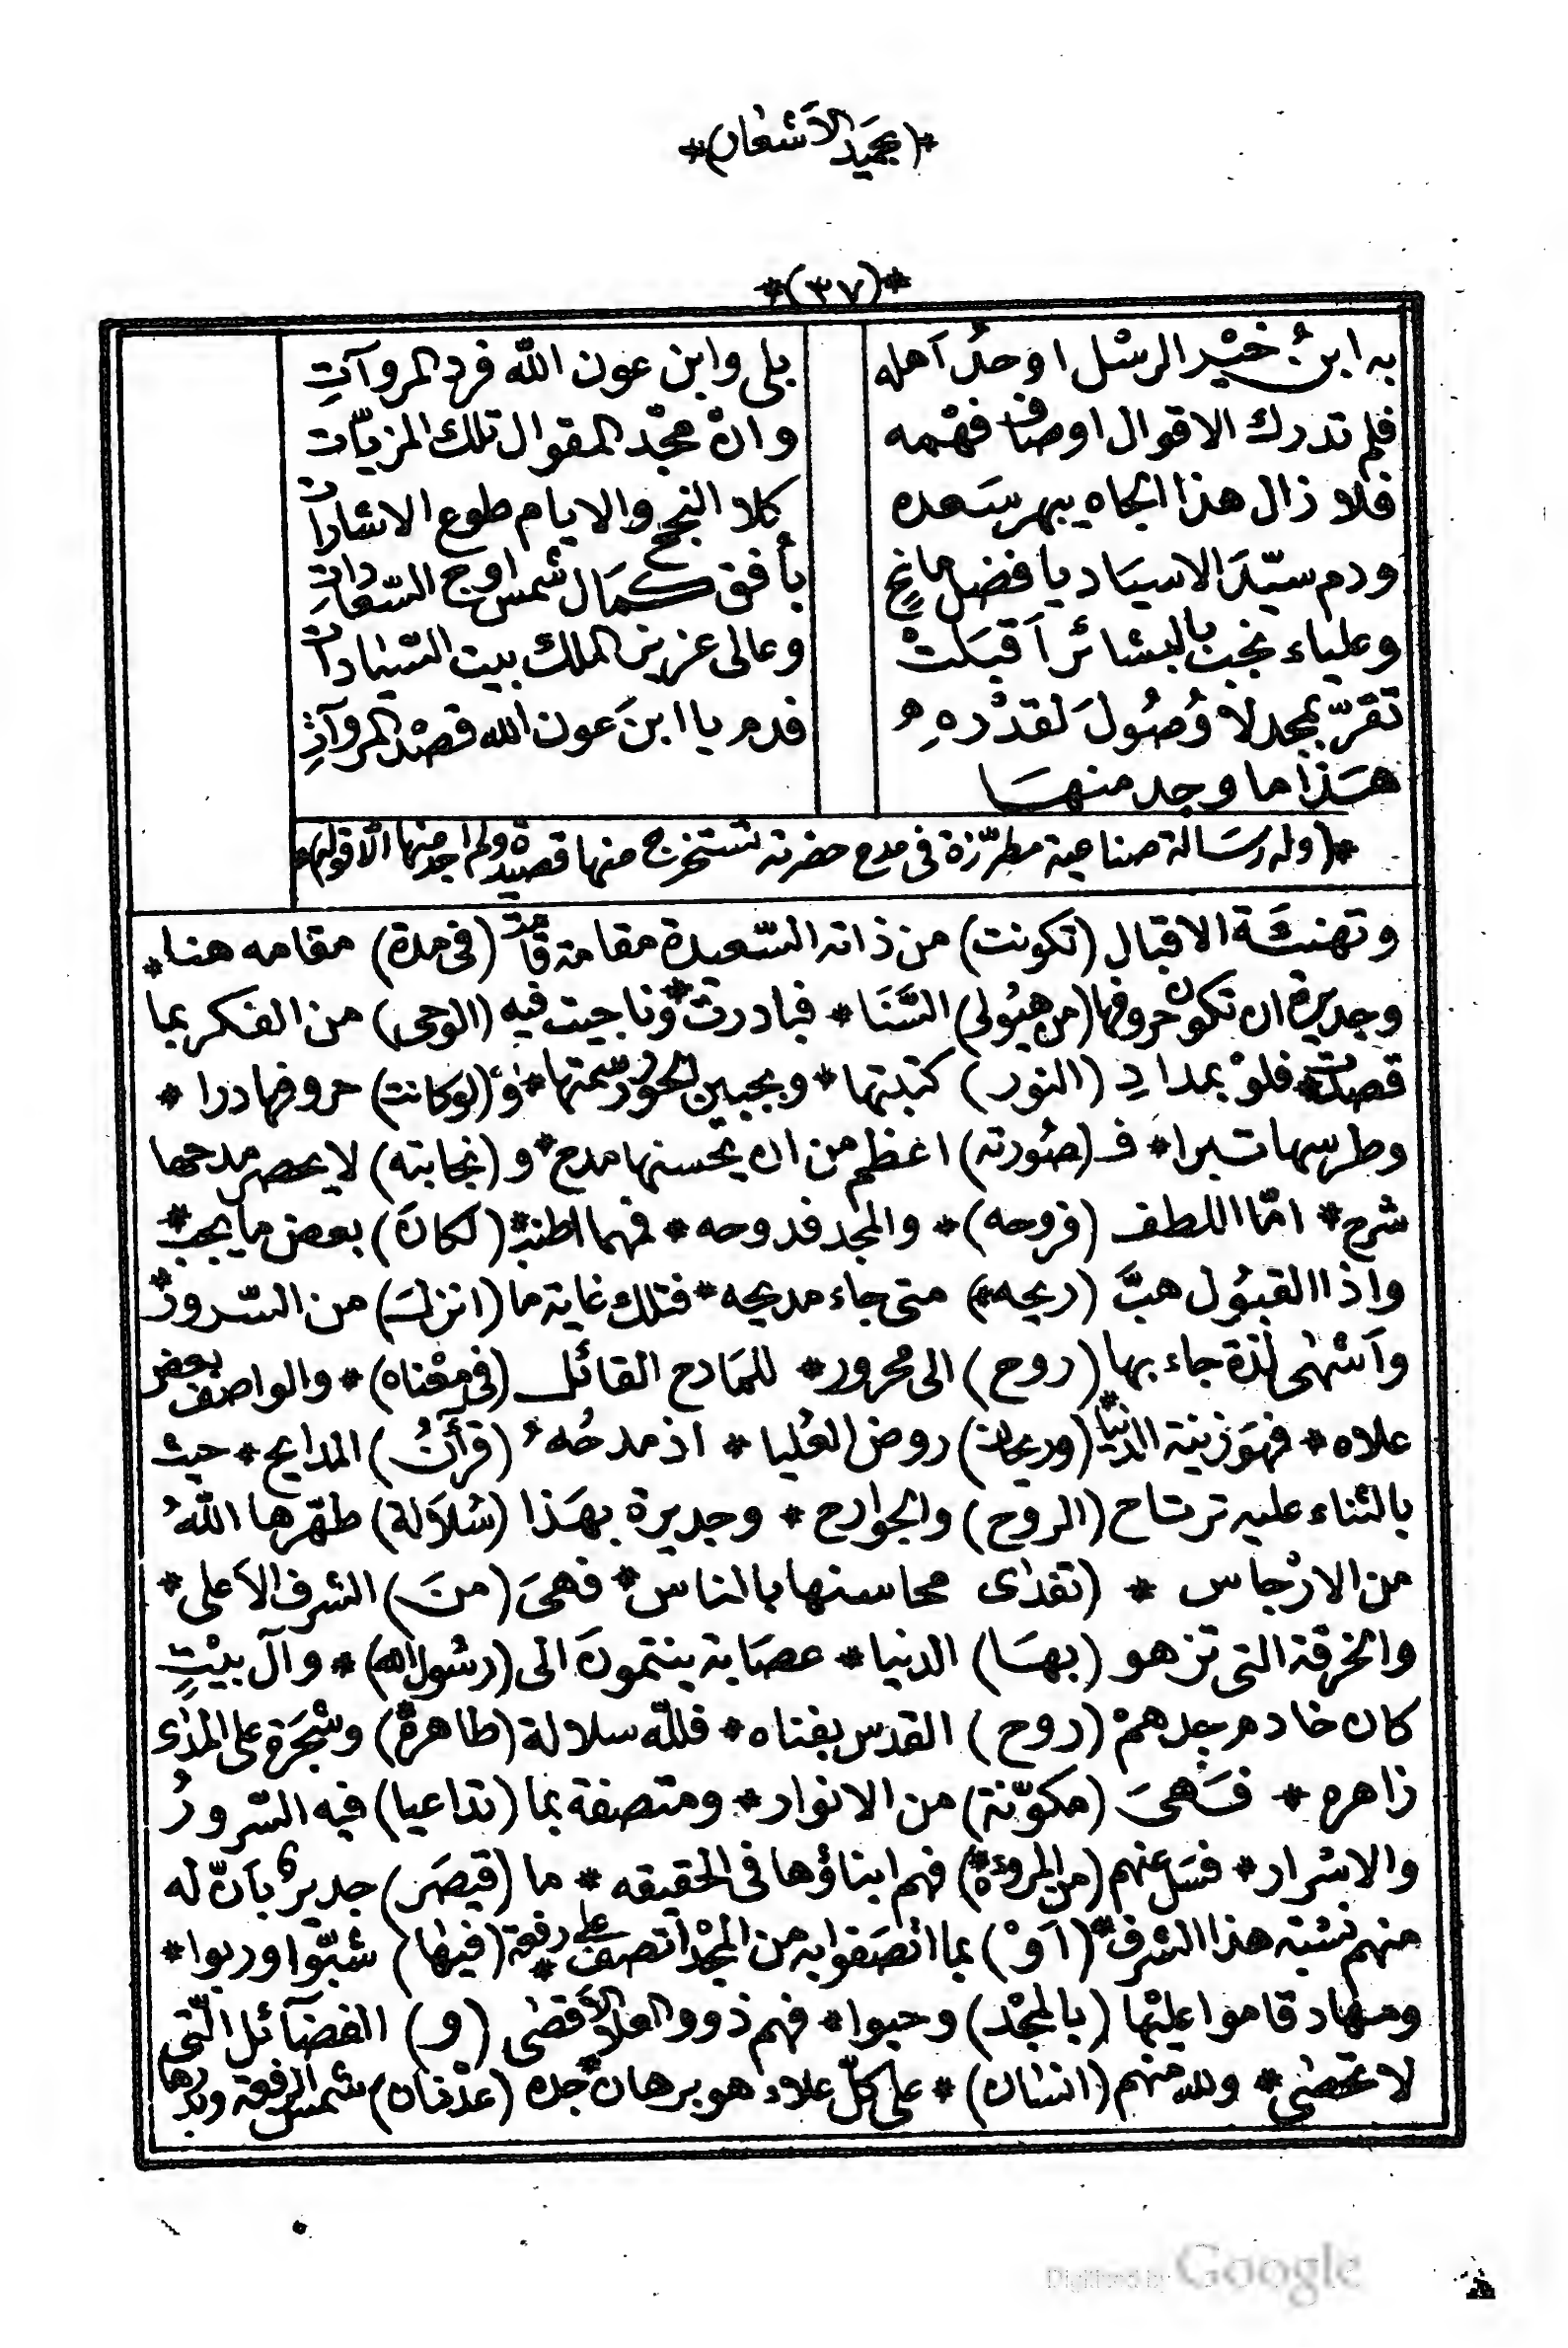 *(بحميد الأشعار)*
*(٣٧)*
به ابنُ خيْر الرسْل اوحدُ آهله بلى وابن عون الله فرد المروآتِ
فلم تدرك الاقوال اوصاف فهْمه وانْ مجّد المقوال تلك المزيّات
فلا زال هذا الجاه يبهر سَعده كلا النجح والايام طوع الاشارات
ودم سيّدَ الاسياد يا فضل مانحٍ بأفق كمَال شمس اوج السّعادات
وعلياء نجب بالبشائر آقبَلتْ وعالى عزيز الملك بيت السّيادات
تقرّ بمجد لا وُصُولَ لقدْرهِ فدم يا ابنَ عون الله قصْد المروآتِ
هَذا ما وجد منهَا
*(وله رسَالة صناعية مطرّزة فى مدح حضرته تستخرج منها قصيدة ولم اجد منها الّا قوله)*
وتهنئَة الاقبال (تكونت) من ذاته السّعيدة مقامة قامت (فى مدة) مقامه هنا *
وجديرة ان تكون حروفها (من هيُولى) السَّنَا * فبادرت * وناجيت فيه (الوحى) من الفكر بما
قصدت * فلوْ بمدادِ (النور) كتبتها * وبجبين الحور رسمتها * وَ (لو كانت) حروفها درا *
وطرسها تبرا * فـ (صُورته) اعْظم من ان يحسنها مدح * و (نجابته) لا يحصر مدحها
شرح * امّا اللطف (فروحه) * والمجد فدوحه * فمهما اطنب * (لكانَ) بعض ما يجب *
واذا القبُول هبَّ (ريحه) * متى جاء مديحه * فتلك غاية ما (انزلت) من السّرور *
وآشهٰى لذة جاء بها (روح) الى محرور * للمَادح القائل (فى معْناه) * والواصف بعض
علاه * فهوَ زينة الدنيا * (وريحان) روض العُليا * اذ مدحُه (قرآنُ) المدايح * حيث
بالثناء عليه ترتاح (الروح) والجوارح * وجديرة بهَذا (سُلَالة) طهّرها اللهُ
من الارْجاس * (تفدى محاسنها بالناس * فهىَ (منَ) الشرف الاعلى *
والخرقة التى تزهو (بهَا) الدنيا * عصَابة ينتمونَ الى (رسُول الله) * وآل بيْتٍ
كان خادم جدهمْ (روح) القدس بفناه * فلله سلالة (طاهرة) وشجَرة على المدٰى
زاهره * فَهىَ (مكوّنة) من الانوار * ومتصفة بما (تداعيا) فيه السّرورُ
والابشرار * فسَل عنهم (من المروءة) فهم ابناؤها فى الحقيقه * ما (قيصَر) جدير بآنّ له
منهم نسْبة هذا الشرف * (آوْ) بما اتصَفوا به من المجْد اتصف * على رفعة (فيهٰا) شبّوا وربوا *
ومهاد قاموا عليْها (بالمجْد) وحبوا * فهم ذوو العلا الآقصٰى (و) الفضآئل الّتى
لا تحصٰى * ولله منهم (انسٰان) * على كلّ علاء هو برهان * جده (عدْنان) شمس الرفعة وبدرها